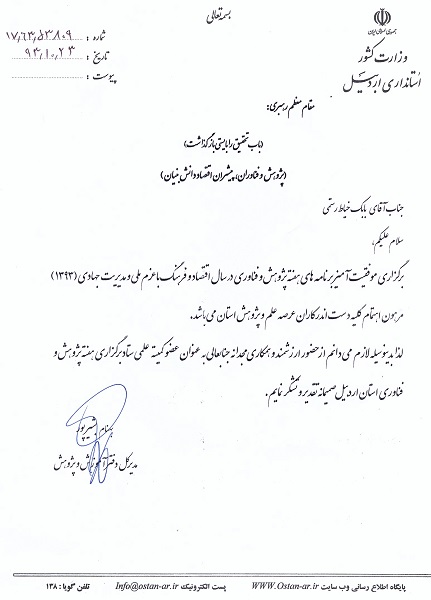 بسمه تعالی
جمهوری اسلامی ایران
وزارت کشور
استانداری اردبیل
شماره : ۱۷,۶۳,۵۳۸۰۹
تاریخ : ۹۳,۱۰,۲۳
پیوست :
مقام معظم رهبری:
(باب تحقیق را بایستی باز گذاشت)
(پژوهش و فناوران، پیشران اقتصاد دانش بنیان)
جناب آقای بابک خیاط رستمی
سلام علیکم،
برگزاری موفقیت آمیز برنامه های هفته پژوهش و فناوری در سال اقتصاد و فرهنگ با عزم ملی و مدیریت جهادی (۱۳۹۳)
مرهون اهتمام کلیه دست اندرکاران عرصه علم و پژوهش استان می باشد.
لذا بدینوسیله لازم می دانم از حضور ارزشمند و همکاری مجدانه جنابعالی به عنوان عضو کمیته علمی ستاد برگزاری هفته پژوهش و
فناوری استان اردبیل صمیمانه تقدیر و تشکر نمایم.
بهنام بشیرپور
مدیرکل دفتر آموزش و پژوهش
پایگاه اطلاع رسانی وب سایت WWW.Ostan-ar.ir پست الکترونیک Info@ostan-ar.ir تلفن گویا : ۱۳۸